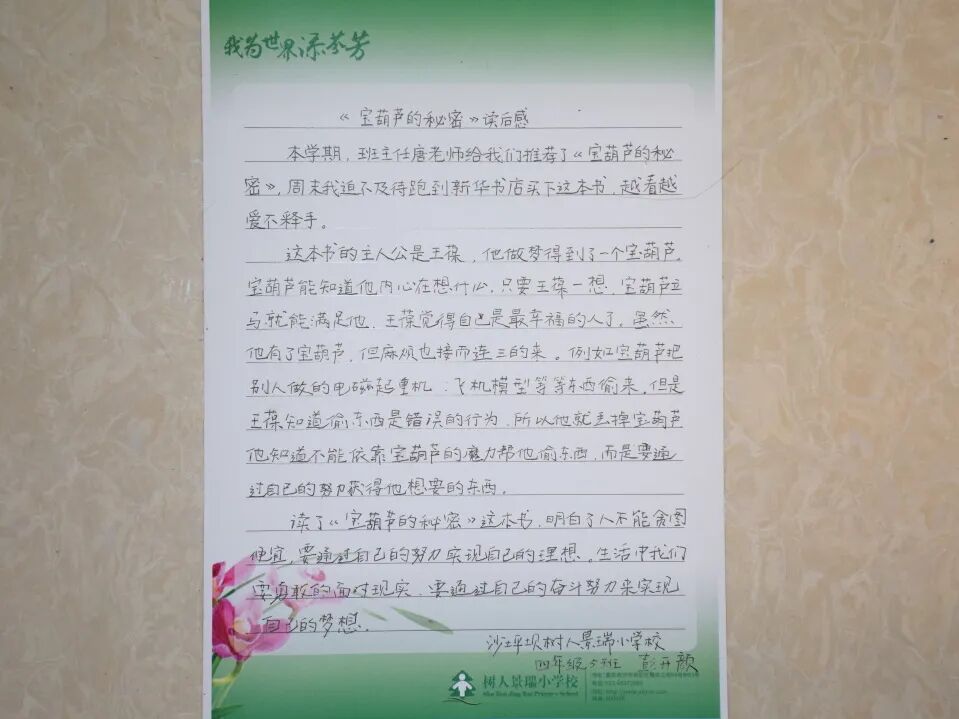 我为世界添芬芳
《宝葫芦的秘密》读后感
本学期，班主任唐老师给我们推荐了《宝葫芦的秘
密》，周末我迫不及待跑到新华书店买下这本书，越看越
爱不释手。
这本书的主人公是王葆，他做梦得到了一个宝葫芦，
宝葫芦能知道他内心在想什么，只要王葆一想，宝葫芦立
马就能满足他，王葆觉得自己是最幸福的人了。虽然
他有了宝葫芦，但麻烦也接而连三的来。例如宝葫芦把
别人做的电磁起重机、飞机模型等等东西偷来，但是
王葆知道偷东西是错误的行为，所以他就丢掉宝葫芦
他知道不能依靠宝葫芦的魔力帮他偷东西，而是要通
过自己的努力获得他想要的东西。
读了《宝葫芦的秘密》这本书，明白了人不能贪图
便宜，要通过自己的努力实现自己的理想。生活中我们
要勇敢的面对现实，要通过自己的奋斗努力来实现
自己的梦想。
沙坪坝树人景瑞小学校
四年级5班 彭开颜
树人景瑞小学校